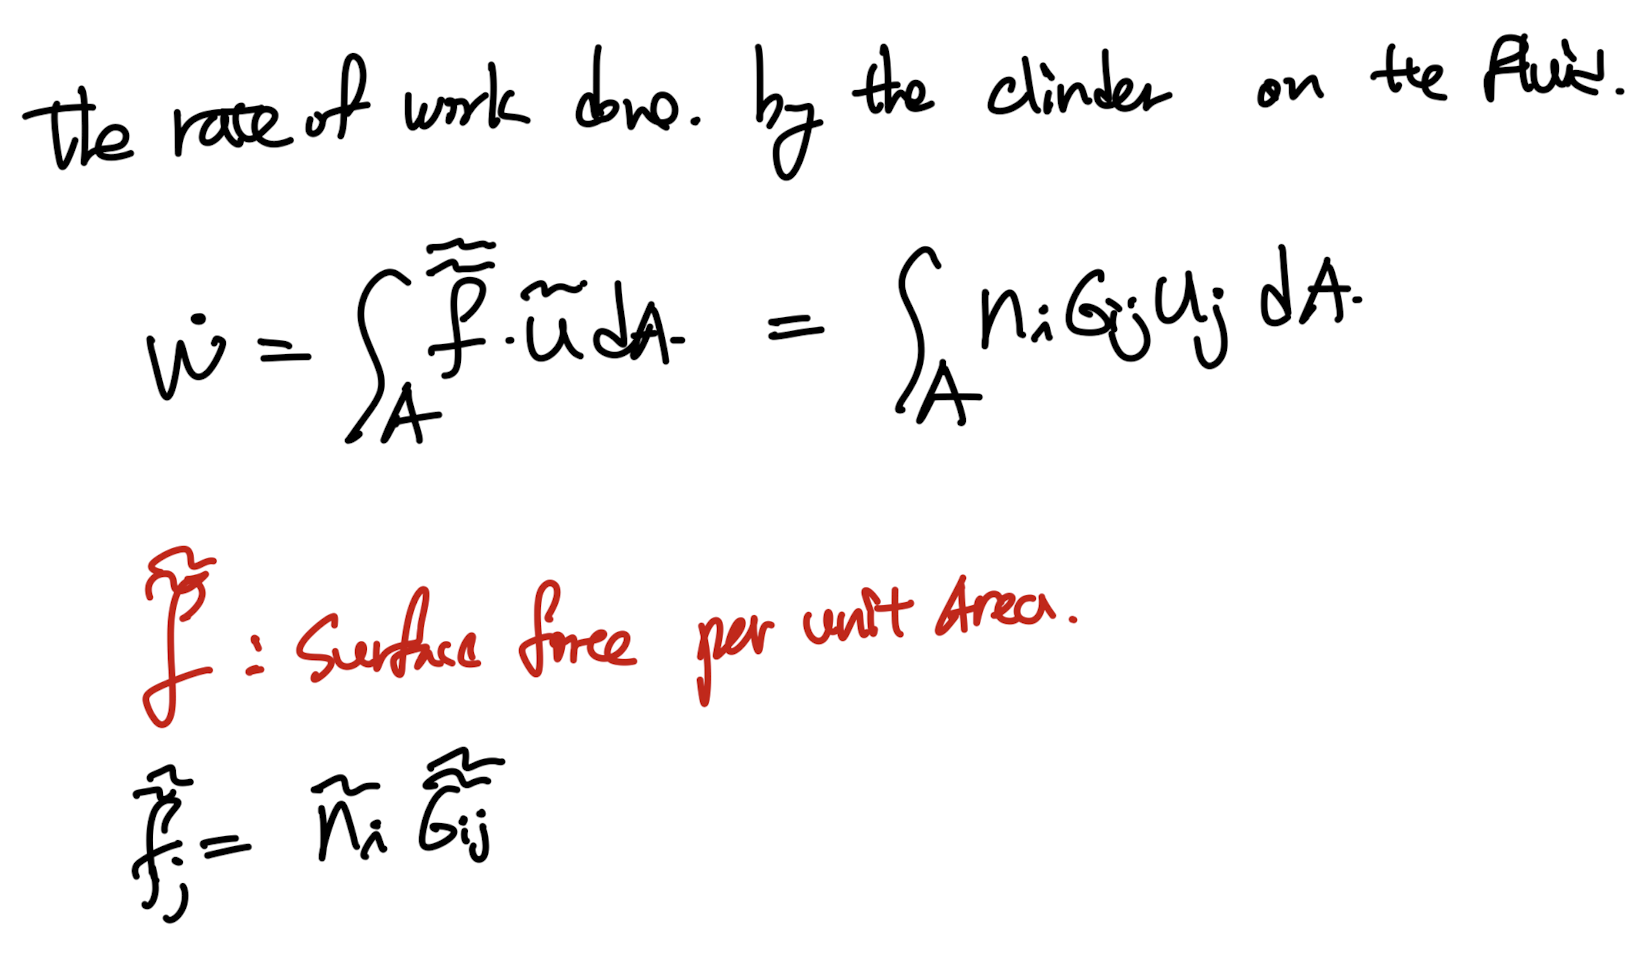 The rate of work done. by the clinder on the fluid.
ẇ = ∫_A f̃̃ · ũ dA. = ∫_A nᵢ σᵢⱼ uⱼ dA.
f̃̃ : surface force per unit Area.
f̃̃ⱼ = ñᵢ σ̃̃ᵢⱼ